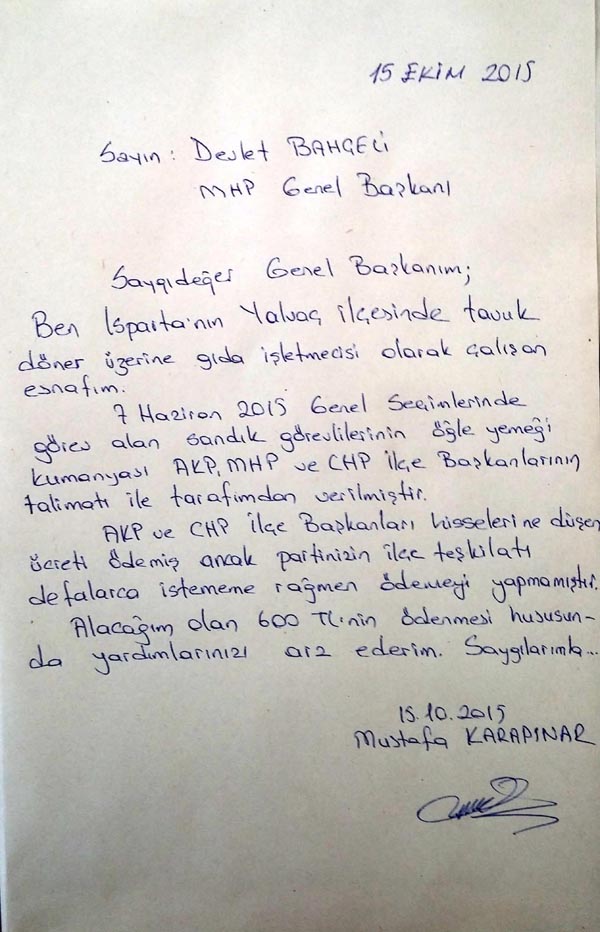 15 EKİM 2015
Sayın: Devlet BAHÇELİ
MHP Genel Başkanı
Saygıdeğer Genel Başkanım;
Ben Isparta'nın Yalvaç ilçesinde tavuk
döner üzerine gıda işletmecisi olarak çalışan
esnafım.
7 Haziran 2015 Genel Seçimlerinde
görev alan sandık görevlilerinin öğle yemeği
kumanyası AKP, MHP ve CHP İlçe Başkanlarının
talimatı ile tarafımdan verilmiştir.
AKP ve CHP İlçe Başkanları hisselerine düşen
ücreti ödemiş ancak partinizin ilçe teşkilatı
defalarca istememe rağmen ödemeyi yapmamıştır.
Alacağım olan 600 TL'nin ödenmesi hususun-
da yardımlarınızı arz ederim. Saygılarımla...
15.10.2015
Mustafa KARAPINAR